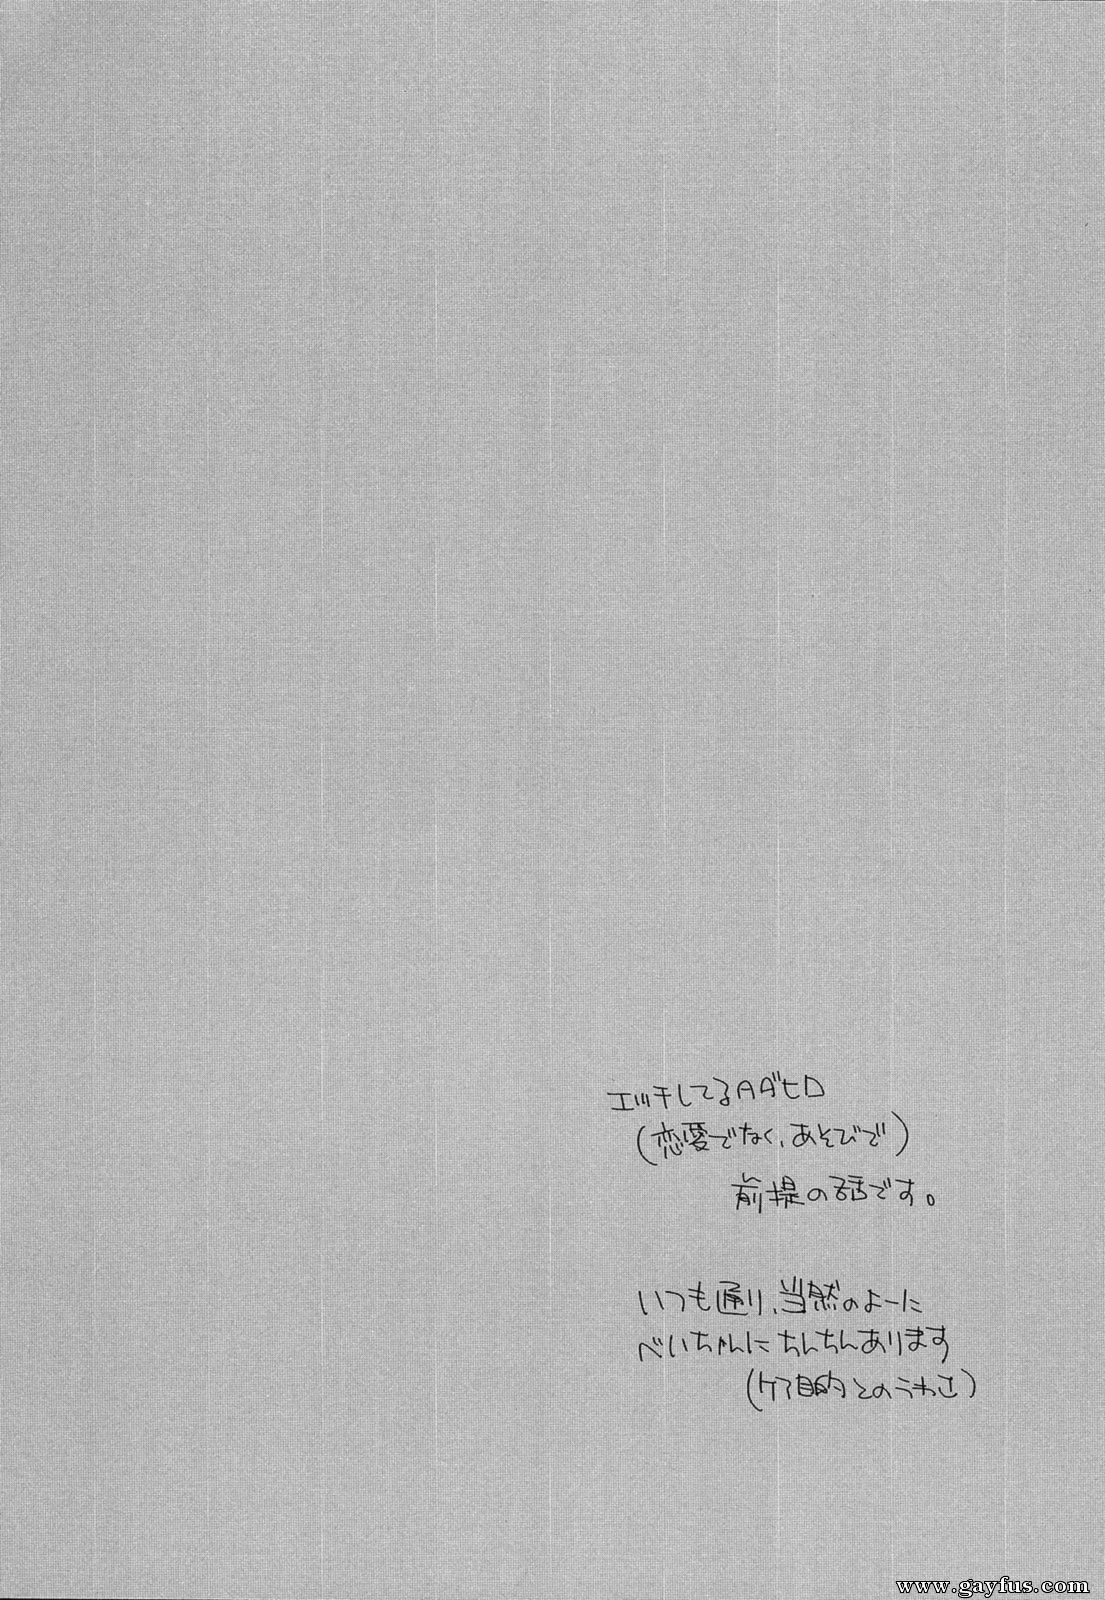 エッチしてるAダヒロ
(恋愛でなく、あそびで)
前提の話です。
いつも通り、当然のよーに
べいちゃんにちんちんあります
(ケア目的とのうわさ)
www.gayfus.com